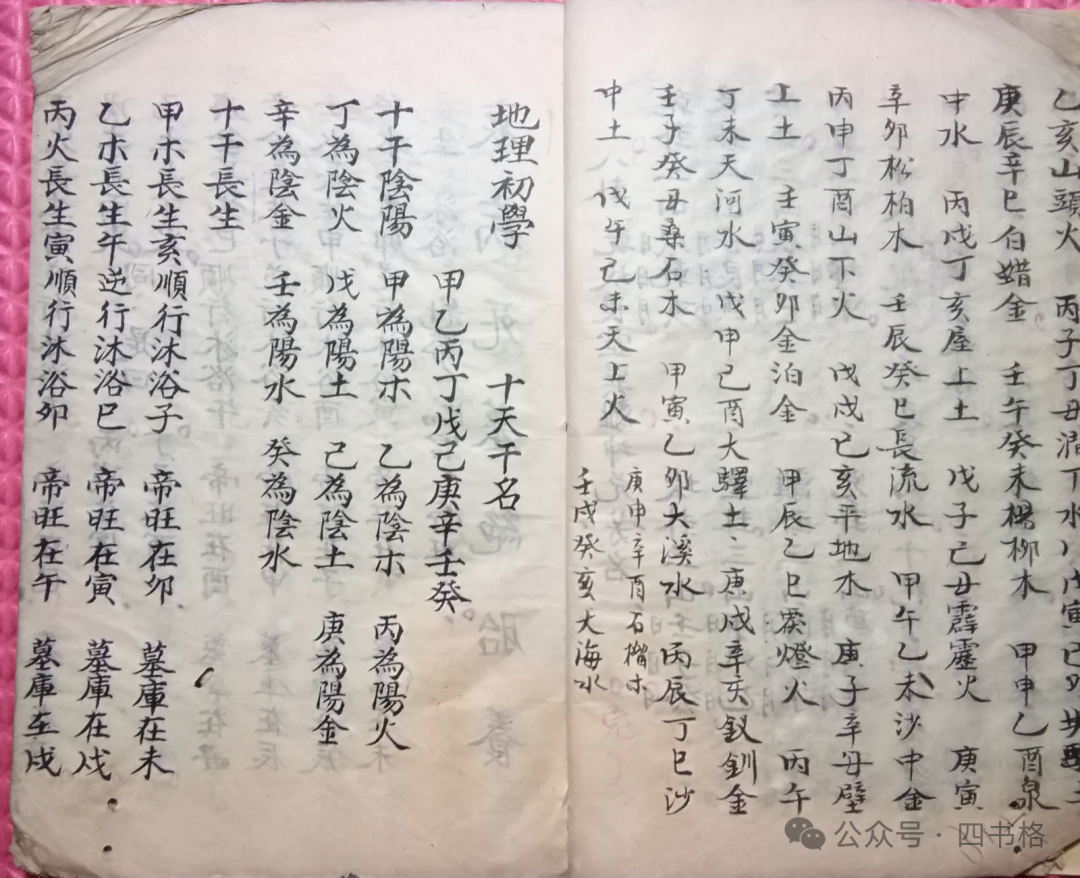 乙亥山頭火 丙子丁丑澗下水 戊寅己卯
庚辰辛巳白蜡金 壬午癸未楊柳木 甲申乙酉泉
中水 丙戌丁亥屋上土 戊子己丑霹靂火 庚寅
辛卯松柏木 壬辰癸巳長流水 甲午乙未沙中金
丙申丁酉山下火 戊戌己亥平地木 庚子辛丑壁
上土 壬寅癸卯金泊金 甲辰乙巳燈火 丙午
丁未天河水 戊申己酉大驛土 庚戌辛亥釵釧金
壬子癸丑桑石木 甲寅乙卯大溪水 丙辰丁巳沙
中土 戊午己未天上火 庚申辛酉石榴木
壬戌癸亥大海水
地理初學 十天干名
甲乙丙丁戊己庚辛壬癸
十干陰陽 甲為陽木 乙為陰木 丙為陽火
丁為陰火 戊為陽土 己為陰土 庚為陽金
辛為陰金 壬為陽水 癸為陰水
十干長生
甲木長生亥順行沐浴子 帝旺在卯 墓庫在未
乙木長生午逆行沐浴巳 帝旺在寅 墓庫在戌
丙火長生寅順行沐浴卯 帝旺在午 墓庫在戌
公众号·四书格